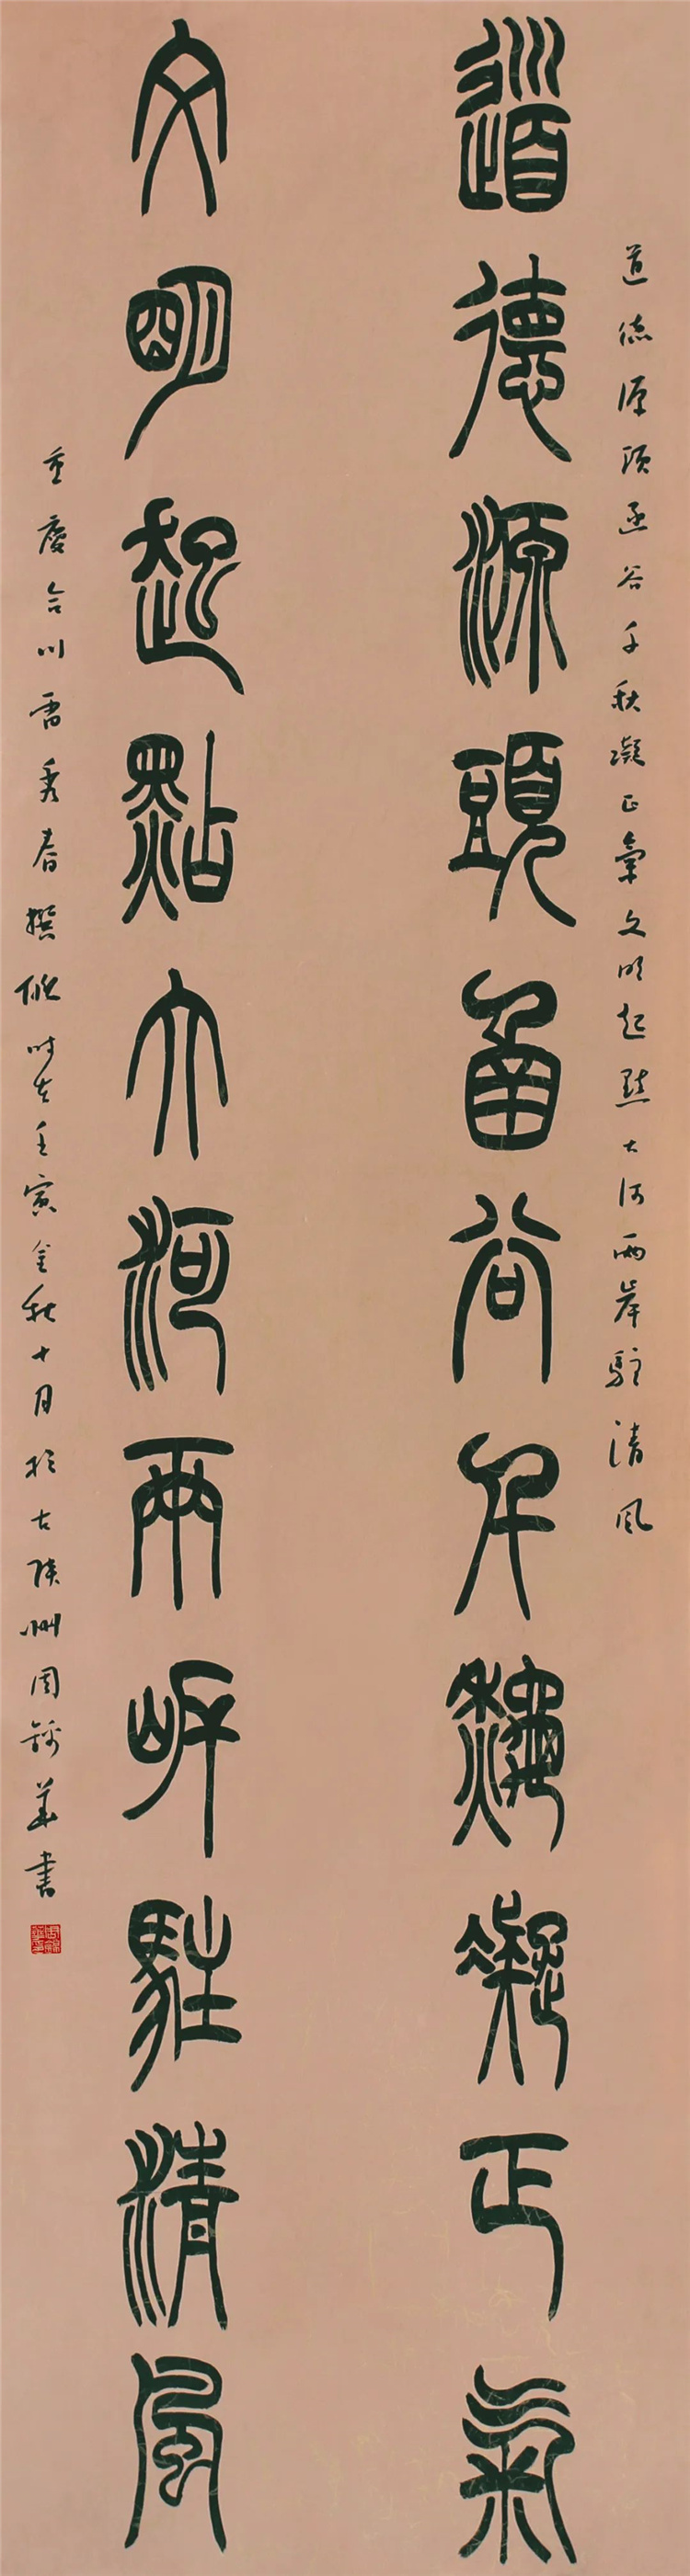 道德源頭函谷千秋凝正氣文明起點大河兩岸駐清風
道德源頭函谷千秋凝正氣
文明起點大河兩岸駐清風
重慶合川雷秀春撰聯時在壬寅金秋十月於古陝州周錦華書